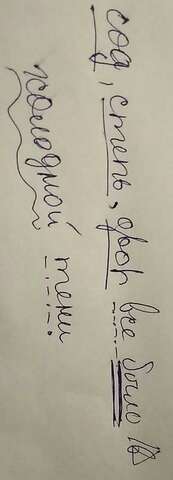 сад, степь, двор все было в
холодной тени.